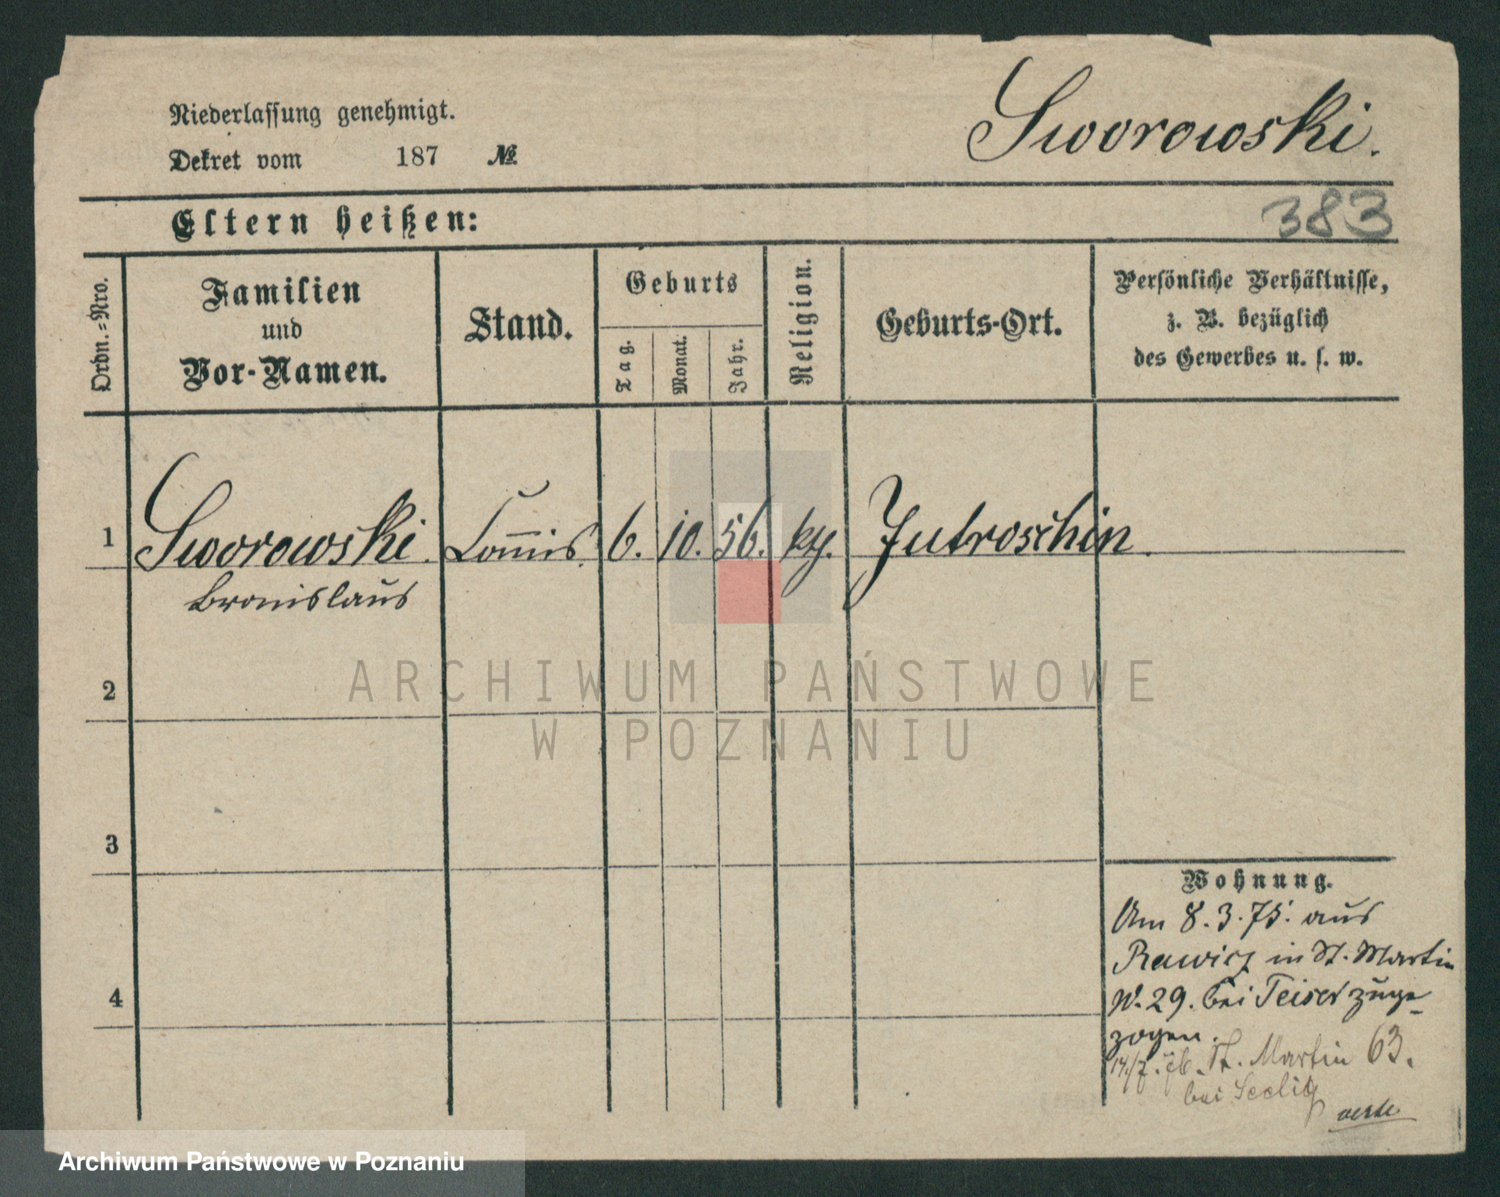 Niederlassung genehmigt.
Sworowski.
Dekret vom 187 №
383
Eltern heißen:
Ordn.-Nro.
Familien
und
Vor-Namen.
Stand.
Geburts
Tag.
Monat.
Jahr.
Religion.
Geburts-Ort.
Persönliche Verhältnisse,
z. B. bezüglich
des Gewerbes u. s. w.
1 Sworowski. Commis. 6. 10. 56. Jutroschin.
Bronislaus
ARCHIWUM PAŃSTWOWE
W POZNANIU
2
3
4
Wohnung.
Am 8.3.75. aus
Rawicz in St. Martin
N. 29. bei Teiser zuge-
zogen.
St. Martin 63.
bei Seelig
Archiwum Państwowe w Poznaniu